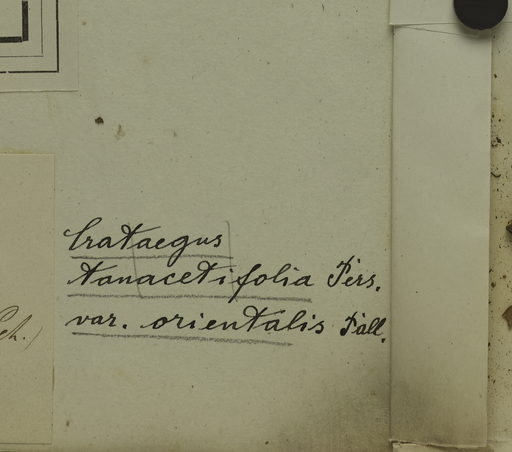 Crataegus
tanacetifolia Pers.
var. orientalis Pall.